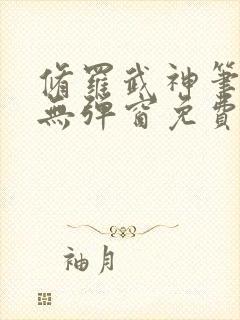 脩羅武神筆
無彈窗免費
袖月